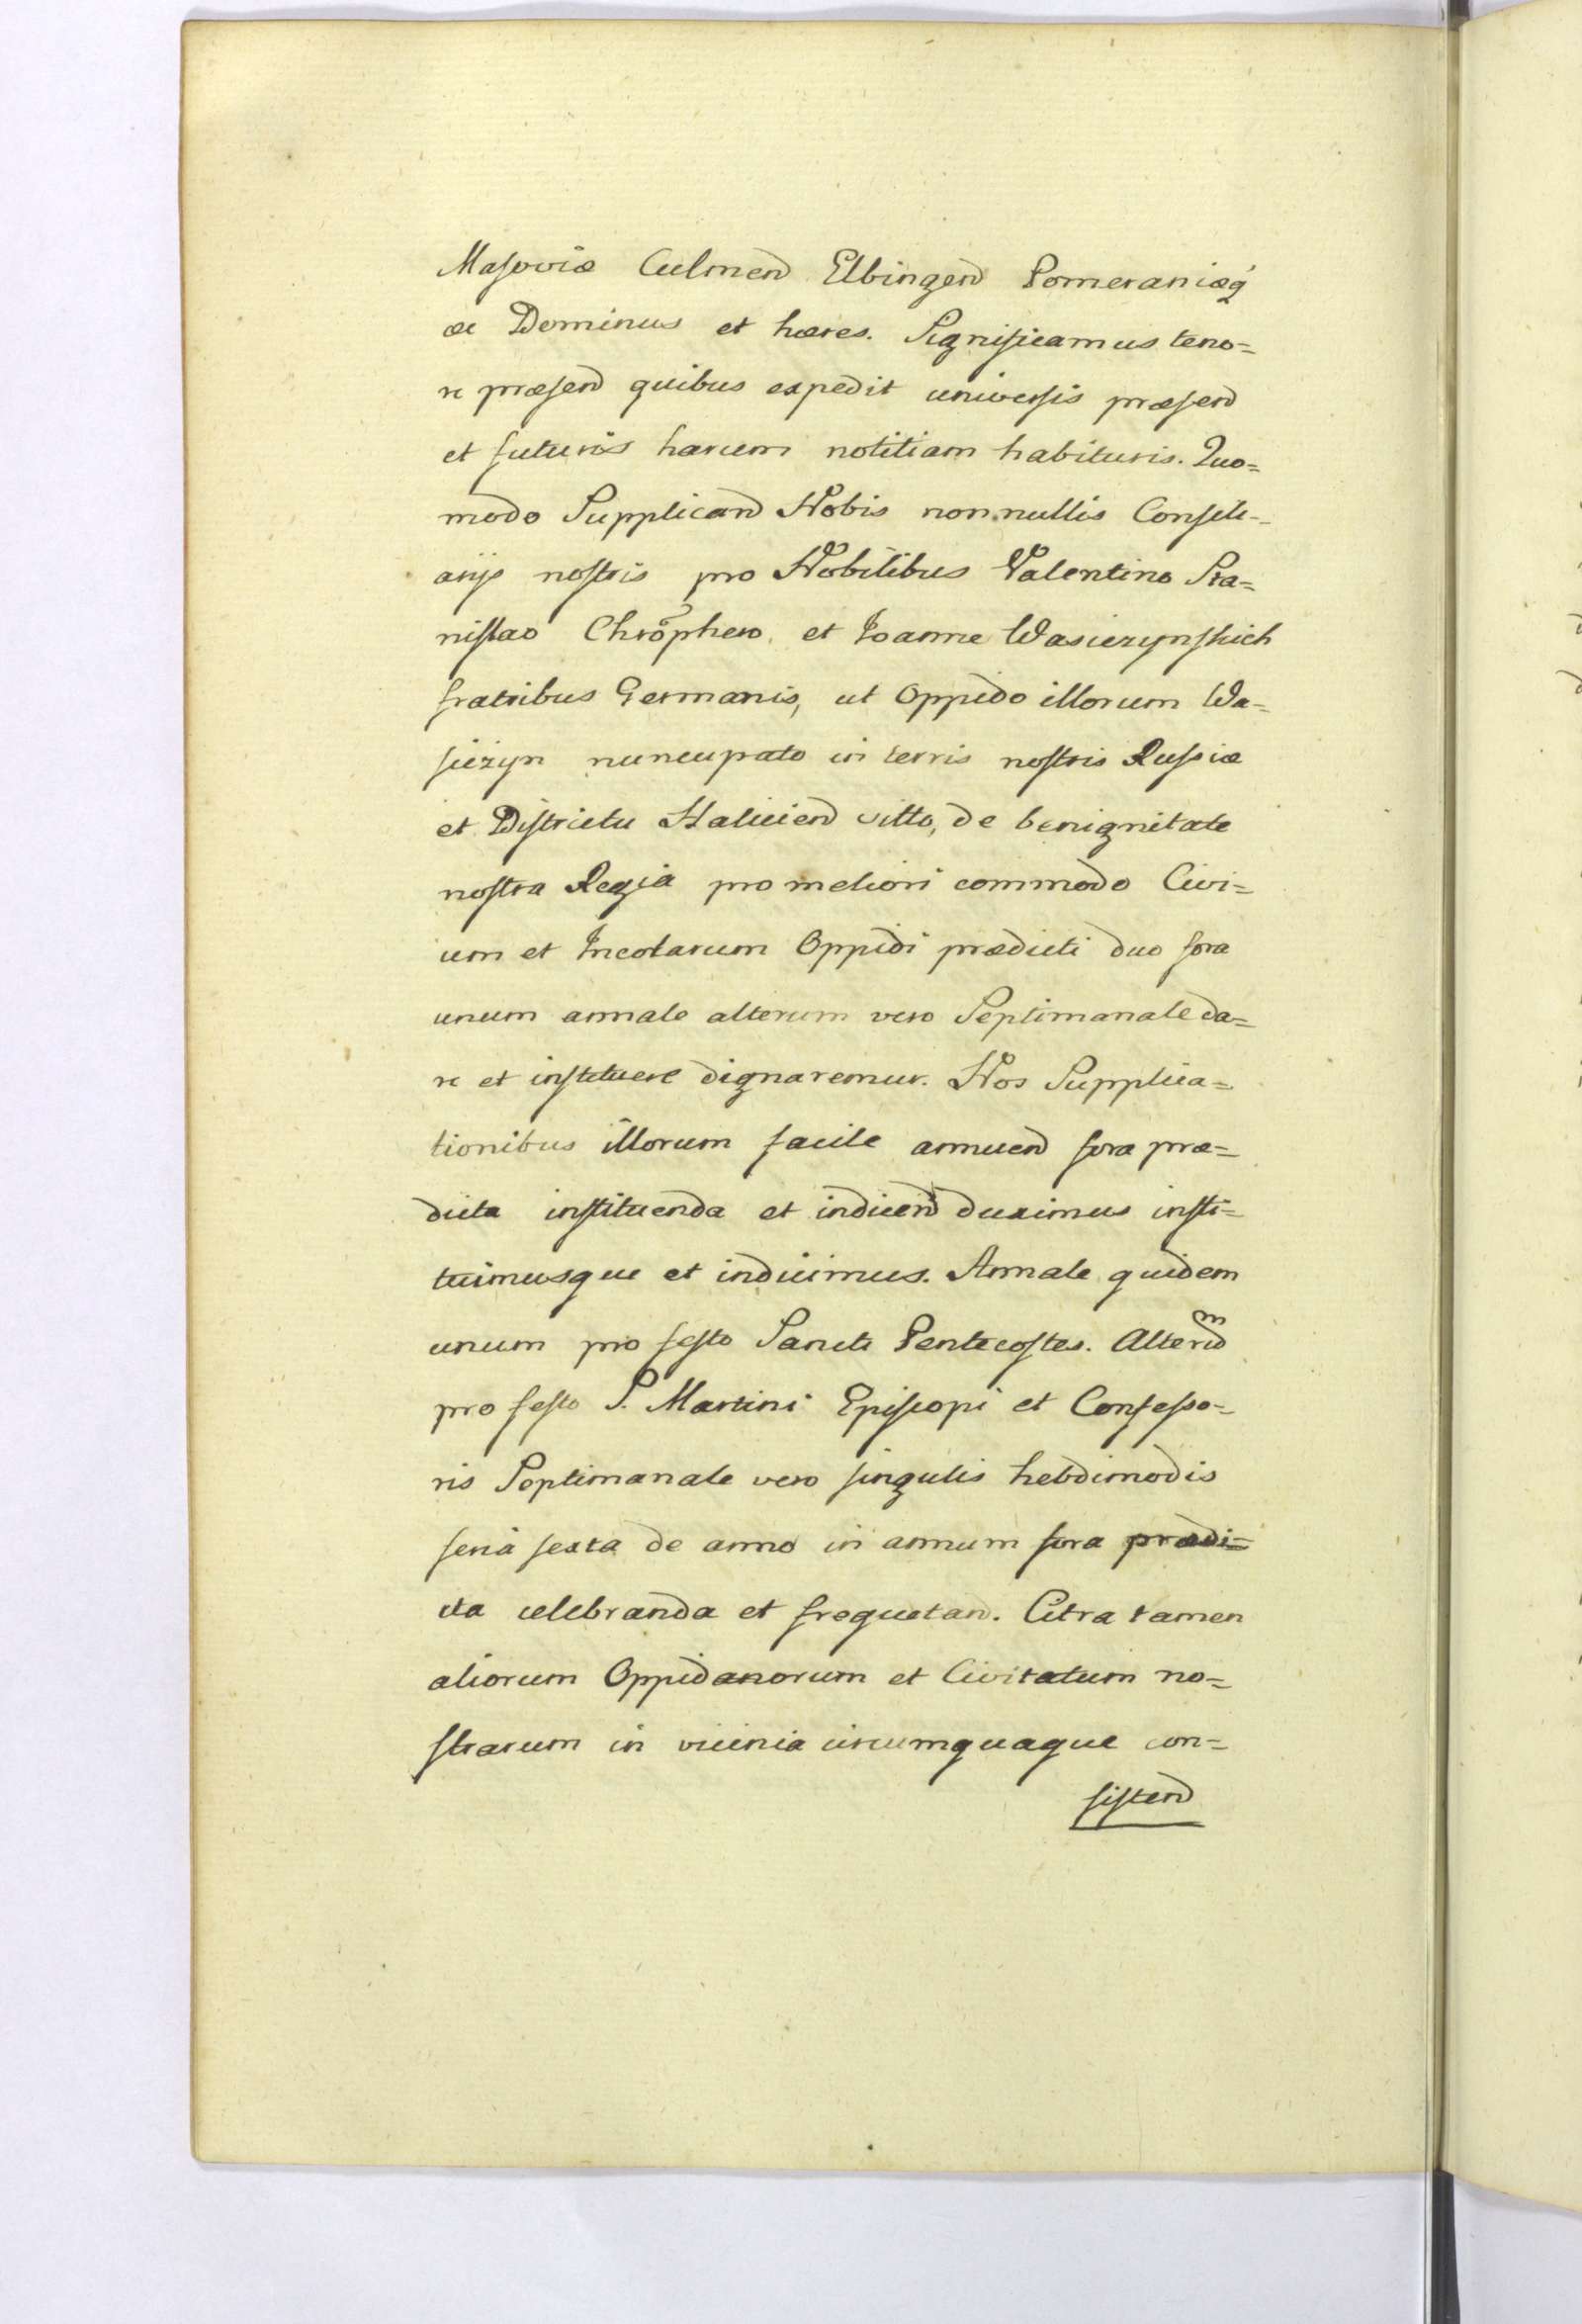 Masoviæ Culmen Elbingen Pomeraniæq
ac Dominus et hæres. Significamus teno=
re præsen quibus expedit universis præsen
et futuris harum notitiam habituris. Quo=
modo Supplican Nobis nonnullis Consili=
arijs nostris pro Nobilibus Valentino Sta=
nislao Chrõphero et Joanne Wasiczynskich
fratribus Germanis, ut Oppido illorum Wa=
siczyn nuncupato in terris nostris Russiæ
et Districtu Halicien sitto, de benignitate
nostra Regia pro meliori commodo Civi=
um et Incolarum Oppidi prædicti duo fora
unum annale alterum vero Septimanale da=
re et instituere dignaremur. Nos Supplica=
tionibus illorum facile annuen fora præ=
dicta instituenda et indicen duximus insti=
tuimusque et indicimus. Annale quidem
unum pro festo Sancti Pentecostes. Alterum
pro festo S. Martini Episcopi et Confesso=
ris Septimanale vero singulis hebdimodis
feria sexta de anno in annum fora prædi=
cta celebranda et frequetan. Citra tamen
aliorum Oppidanorum et Civitatum no=
strarum in vicinia circumquaque con=
sisten